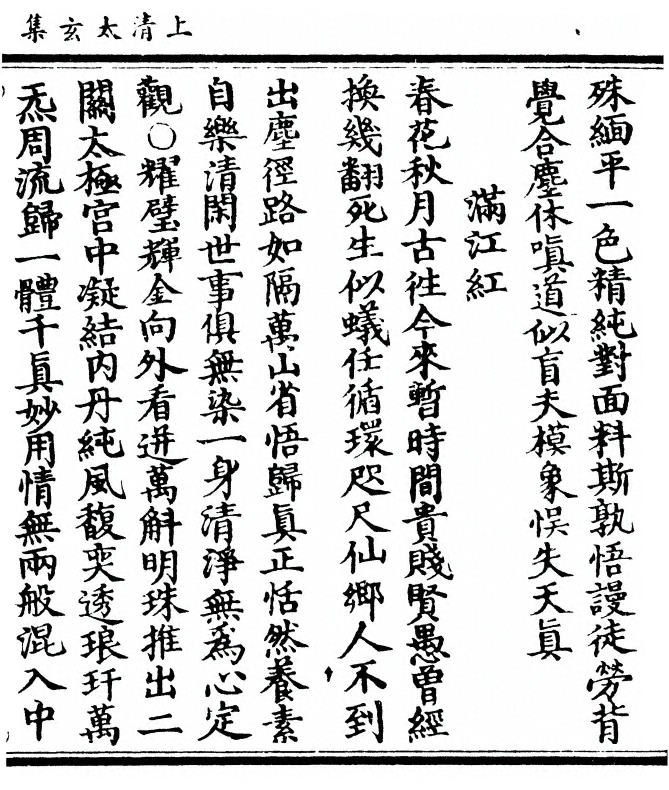 上清太玄集
殊緬平一色精純對面料斯孰悟謾徒勞背
覺合塵休嗔道似盲夫模象悮失天眞
滿江紅
春花秋月古往今來暫時間貴賤賢愚曾經
換幾翻死生似蟻任循環咫尺仙鄉人不到
出塵徑路如隔萬山省悟歸眞正恬然養素
自樂清閑世事俱無染一身清淨無爲心定
觀○耀璧輝金向外看迸萬斛明珠推出二
關太極宮中凝結內丹純風馥奕透琅玕萬
炁周流歸一體千眞妙用情無兩般混入中